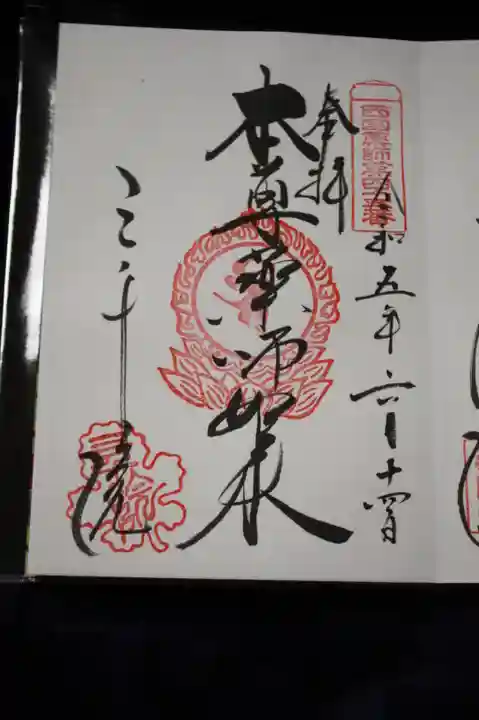 奉拝
令和五年六月十四日
本尊薬師如来
三千院